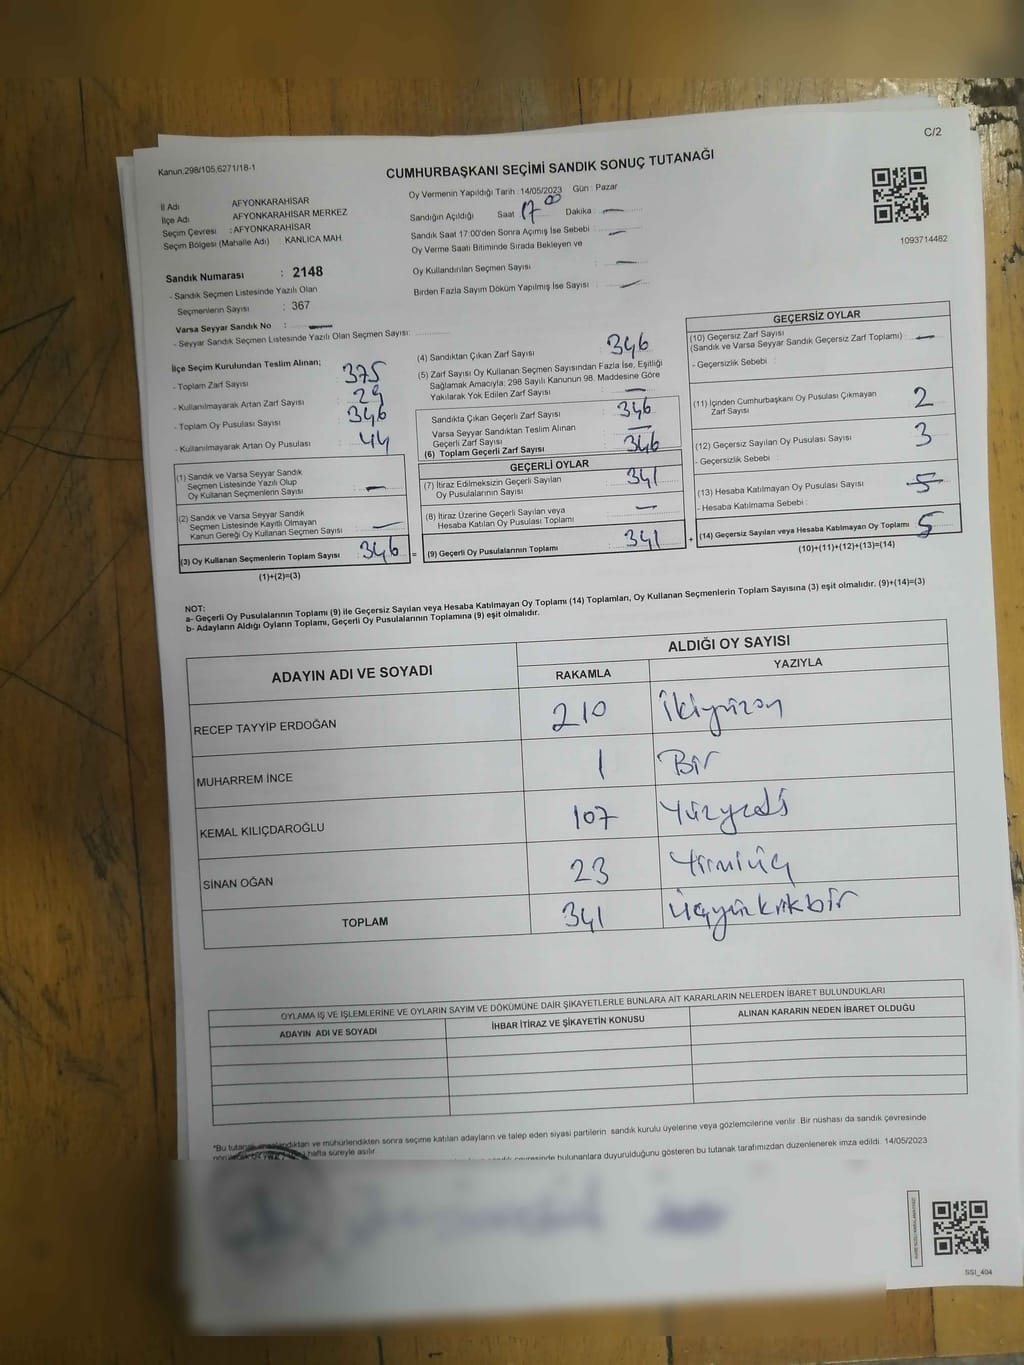 C/2
Kanun,298/105,6271/18-1
CUMHURBAŞKANI SEÇİMİ SANDIK SONUÇ TUTANAĞI
İl Adı AFYONKARAHİSAR
İlçe Adı AFYONKARAHİSAR MERKEZ
Seçim Çevresi : AFYONKARAHİSAR
Seçim Bölgesi (Mahalle Adı) : KANLICA MAH.
Oy Vermenin Yapıldığı Tarih : 14/05/2023 Gün : Pazar
Sandığın Açıldığı Saat : 17 00 Dakika : —
Sandık Saat 17:00'den Sonra Açımış İse Sebebi : —
Oy Verme Saati Bitiminde Sırada Bekleyen ve
Oy Kullandırılan Seçmen Sayısı : —
Birden Fazla Sayım Döküm Yapılmış İse Sayısı : —
1093714482
Sandık Numarası : 2148
- Sandık Seçmen Listesinde Yazılı Olan
Seçmenlerin Sayısı : 367
Varsa Seyyar Sandık No : —
- Seyyar Sandık Seçmen Listesinde Yazılı Olan Seçmen Sayısı:
İlçe Seçim Kurulundan Teslim Alınan;
- Toplam Zarf Sayısı : 375
- Kullanılmayarak Artan Zarf Sayısı : 29
- Toplam Oy Pusulası Sayısı : 346
- Kullanılmayarak Artan Oy Pusulası : 44
(1) Sandık ve Varsa Seyyar Sandık
Seçmen Listesinde Yazılı Olup
Oy Kullanan Seçmenlerin Sayısı : —
(2) Sandık ve Varsa Seyyar Sandık
Seçmen Listesinde Kayıtlı Olmayan
Kanun Gereği Oy Kullanan Seçmen Sayısı : —
(3) Oy Kullanan Seçmenlerin Toplam Sayısı : 346 =
(1)+(2)=(3)
(4) Sandıktan Çıkan Zarf Sayısı : 346
(5) Zarf Sayısı Oy Kullanan Seçmen Sayısından Fazla İse, Eşitliği
Sağlamak Amacıyla; 298 Sayılı Kanunun 98. Maddesine Göre
Yakılarak Yok Edilen Zarf Sayısı : —
Sandıkta Çıkan Geçerli Zarf Sayısı : 346
Varsa Seyyar Sandıktan Teslim Alınan
Geçerli Zarf Sayısı : —
(6) Toplam Geçerli Zarf Sayısı : 346
GEÇERLİ OYLAR
(7) İtiraz Edilmeksizin Geçerli Sayılan
Oy Pusulalarının Sayısı : 341
(8) İtiraz Üzerine Geçerli Sayılan veya
Hesaba Katılan Oy Pusulası Toplamı : —
(9) Geçerli Oy Pusulalarının Toplamı : 341 +
GEÇERSİZ OYLAR
(10) Geçersiz Zarf Sayısı
(Sandık ve Varsa Seyyar Sandık Geçersiz Zarf Toplamı) : —
- Geçersizlik Sebebi :
(11) İçinden Cumhurbaşkanı Oy Pusulası Çıkmayan
Zarf Sayısı : 2
(12) Geçersiz Sayılan Oy Pusulası Sayısı : 3
- Geçersizlik Sebebi :
(13) Hesaba Katılmayan Oy Pusulası Sayısı : 5
- Hesaba Katılmama Sebebi :
(14) Geçersiz Sayılan veya Hesaba Katılmayan Oy Toplamı : 5
(10)+(11)+(12)+(13)=(14)
NOT:
a- Geçerli Oy Pusulalarının Toplamı (9) ile Geçersiz Sayılan veya Hesaba Katılmayan Oy Toplamı (14) Toplamları, Oy Kullanan Seçmenlerin Toplam Sayısına (3) eşit olmalıdır. (9)+(14)=(3)
b- Adayların Aldığı Oyların Toplamı, Geçerli Oy Pusulalarının Toplamına (9) eşit olmalıdır.
ADAYIN ADI VE SOYADI ALDIĞI OY SAYISI
RAKAMLA YAZIYLA
RECEP TAYYİP ERDOĞAN 210 ikiyüzon
MUHARREM İNCE 1 Bir
KEMAL KILIÇDAROĞLU 107 Yüzyedi
SİNAN OĞAN 23 Yirmiüç
TOPLAM 341 Üçyüzkırkbir
OYLAMA İŞ VE İŞLEMLERİNE VE OYLARIN SAYIM VE DÖKÜMÜNE DAİR ŞİKAYETLERLE BUNLARA AİT KARARLARIN NELERDEN İBARET BULUNDUKLARI
ADAYIN ADI VE SOYADI İHBAR İTİRAZ VE ŞİKAYETİN KONUSU ALINAN KARARIN NEDEN İBARET OLDUĞU
*Bu tutanak imzalandıktan ve mühürlendikten sonra seçime katılan adayların ve talep eden siyasi partilerin sandık kurulu üyelerine veya gözlemcilerine verilir. Bir nüshası da sandık çevresinde
hafta süreyle asılır.
bulunanlara duyurulduğunu gösteren bu tutanak tarafımızdan düzenlenerek imza edildi. 14/05/2023
SSI_404